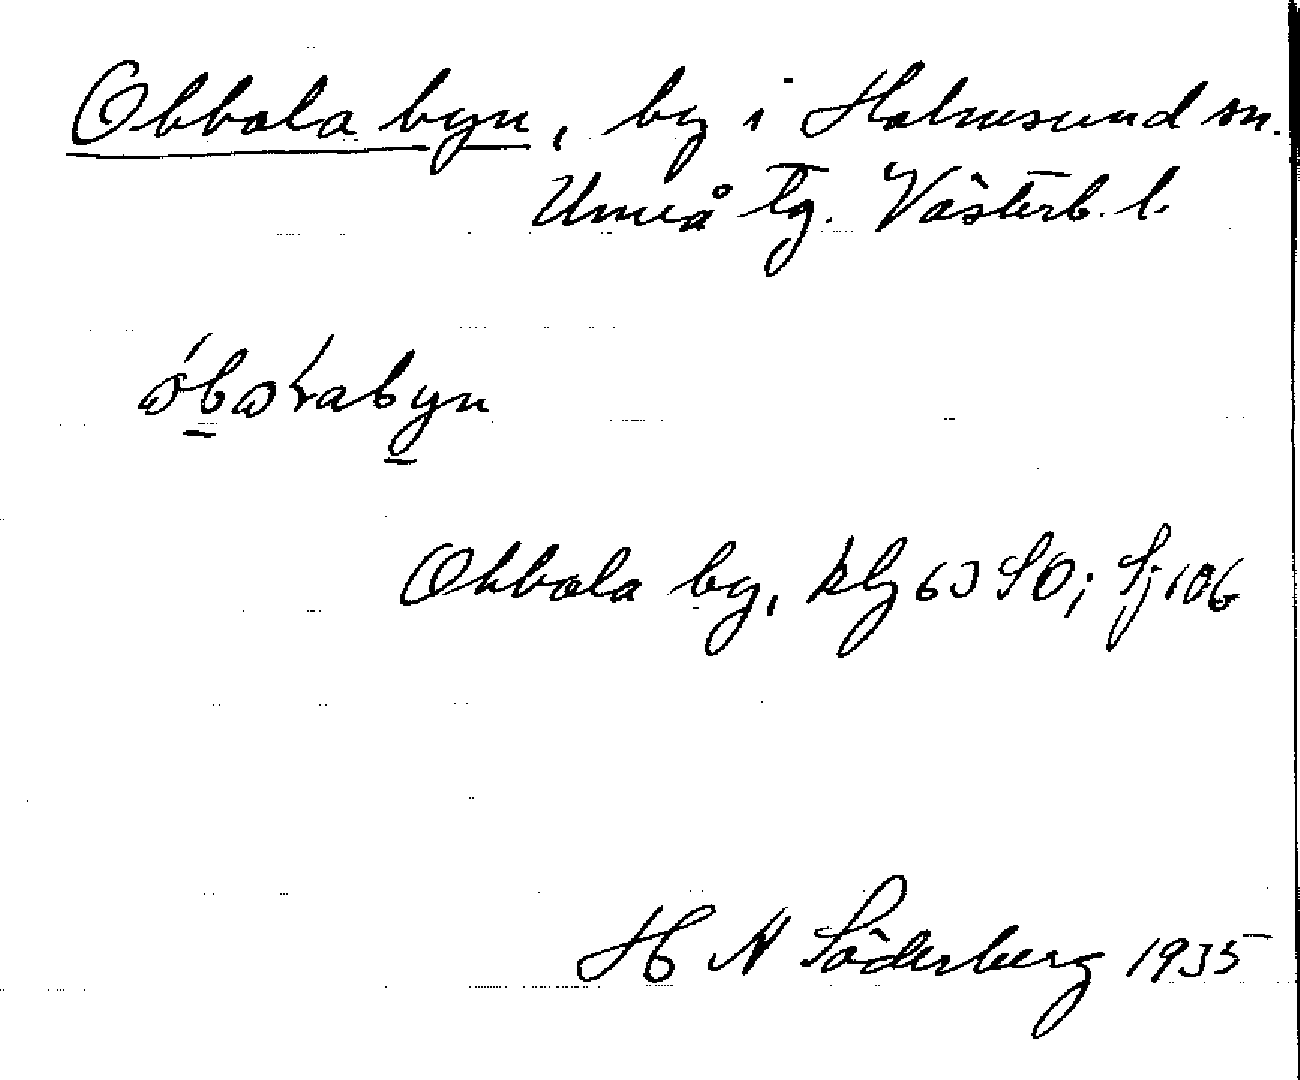 Obbola byn, by i Holmsund sn.
Umeå tg. Västerb. l.
Obbola by, klg 63 SO; Sj 106
H N Söderberg 1935